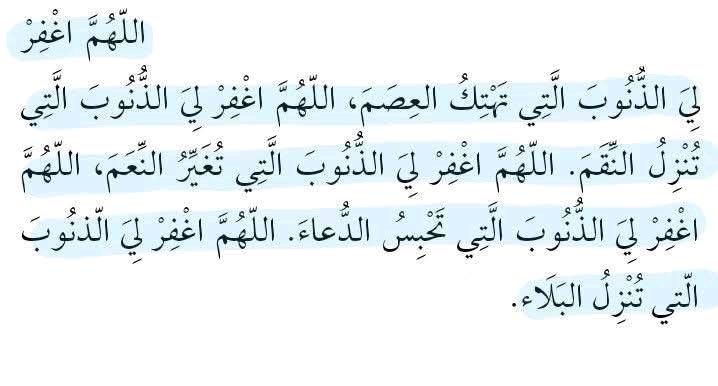 اللّهُمَّ اغْفِرْ
لِيَ الذُّنُوبَ الَّتِي تَهْتِكُ العِصَمَ، اللّهُمَّ اغْفِرْ لِيَ الذُّنُوبَ الَّتِي
تُنْزِلُ النِّقَمَ. اللّهُمَّ اغْفِرْ لِيَ الذُّنُوبَ الَّتِي تُغَيِّرُ النِّعَمَ، اللّهُمَّ
اغْفِرْ لِيَ الذُّنُوبَ الَّتِي تَحْبِسُ الدُّعاءَ. اللّهُمَّ اغْفِرْ لِيَ الّذنُوبَ
الّتي تُنْزِلُ البَلَاء.